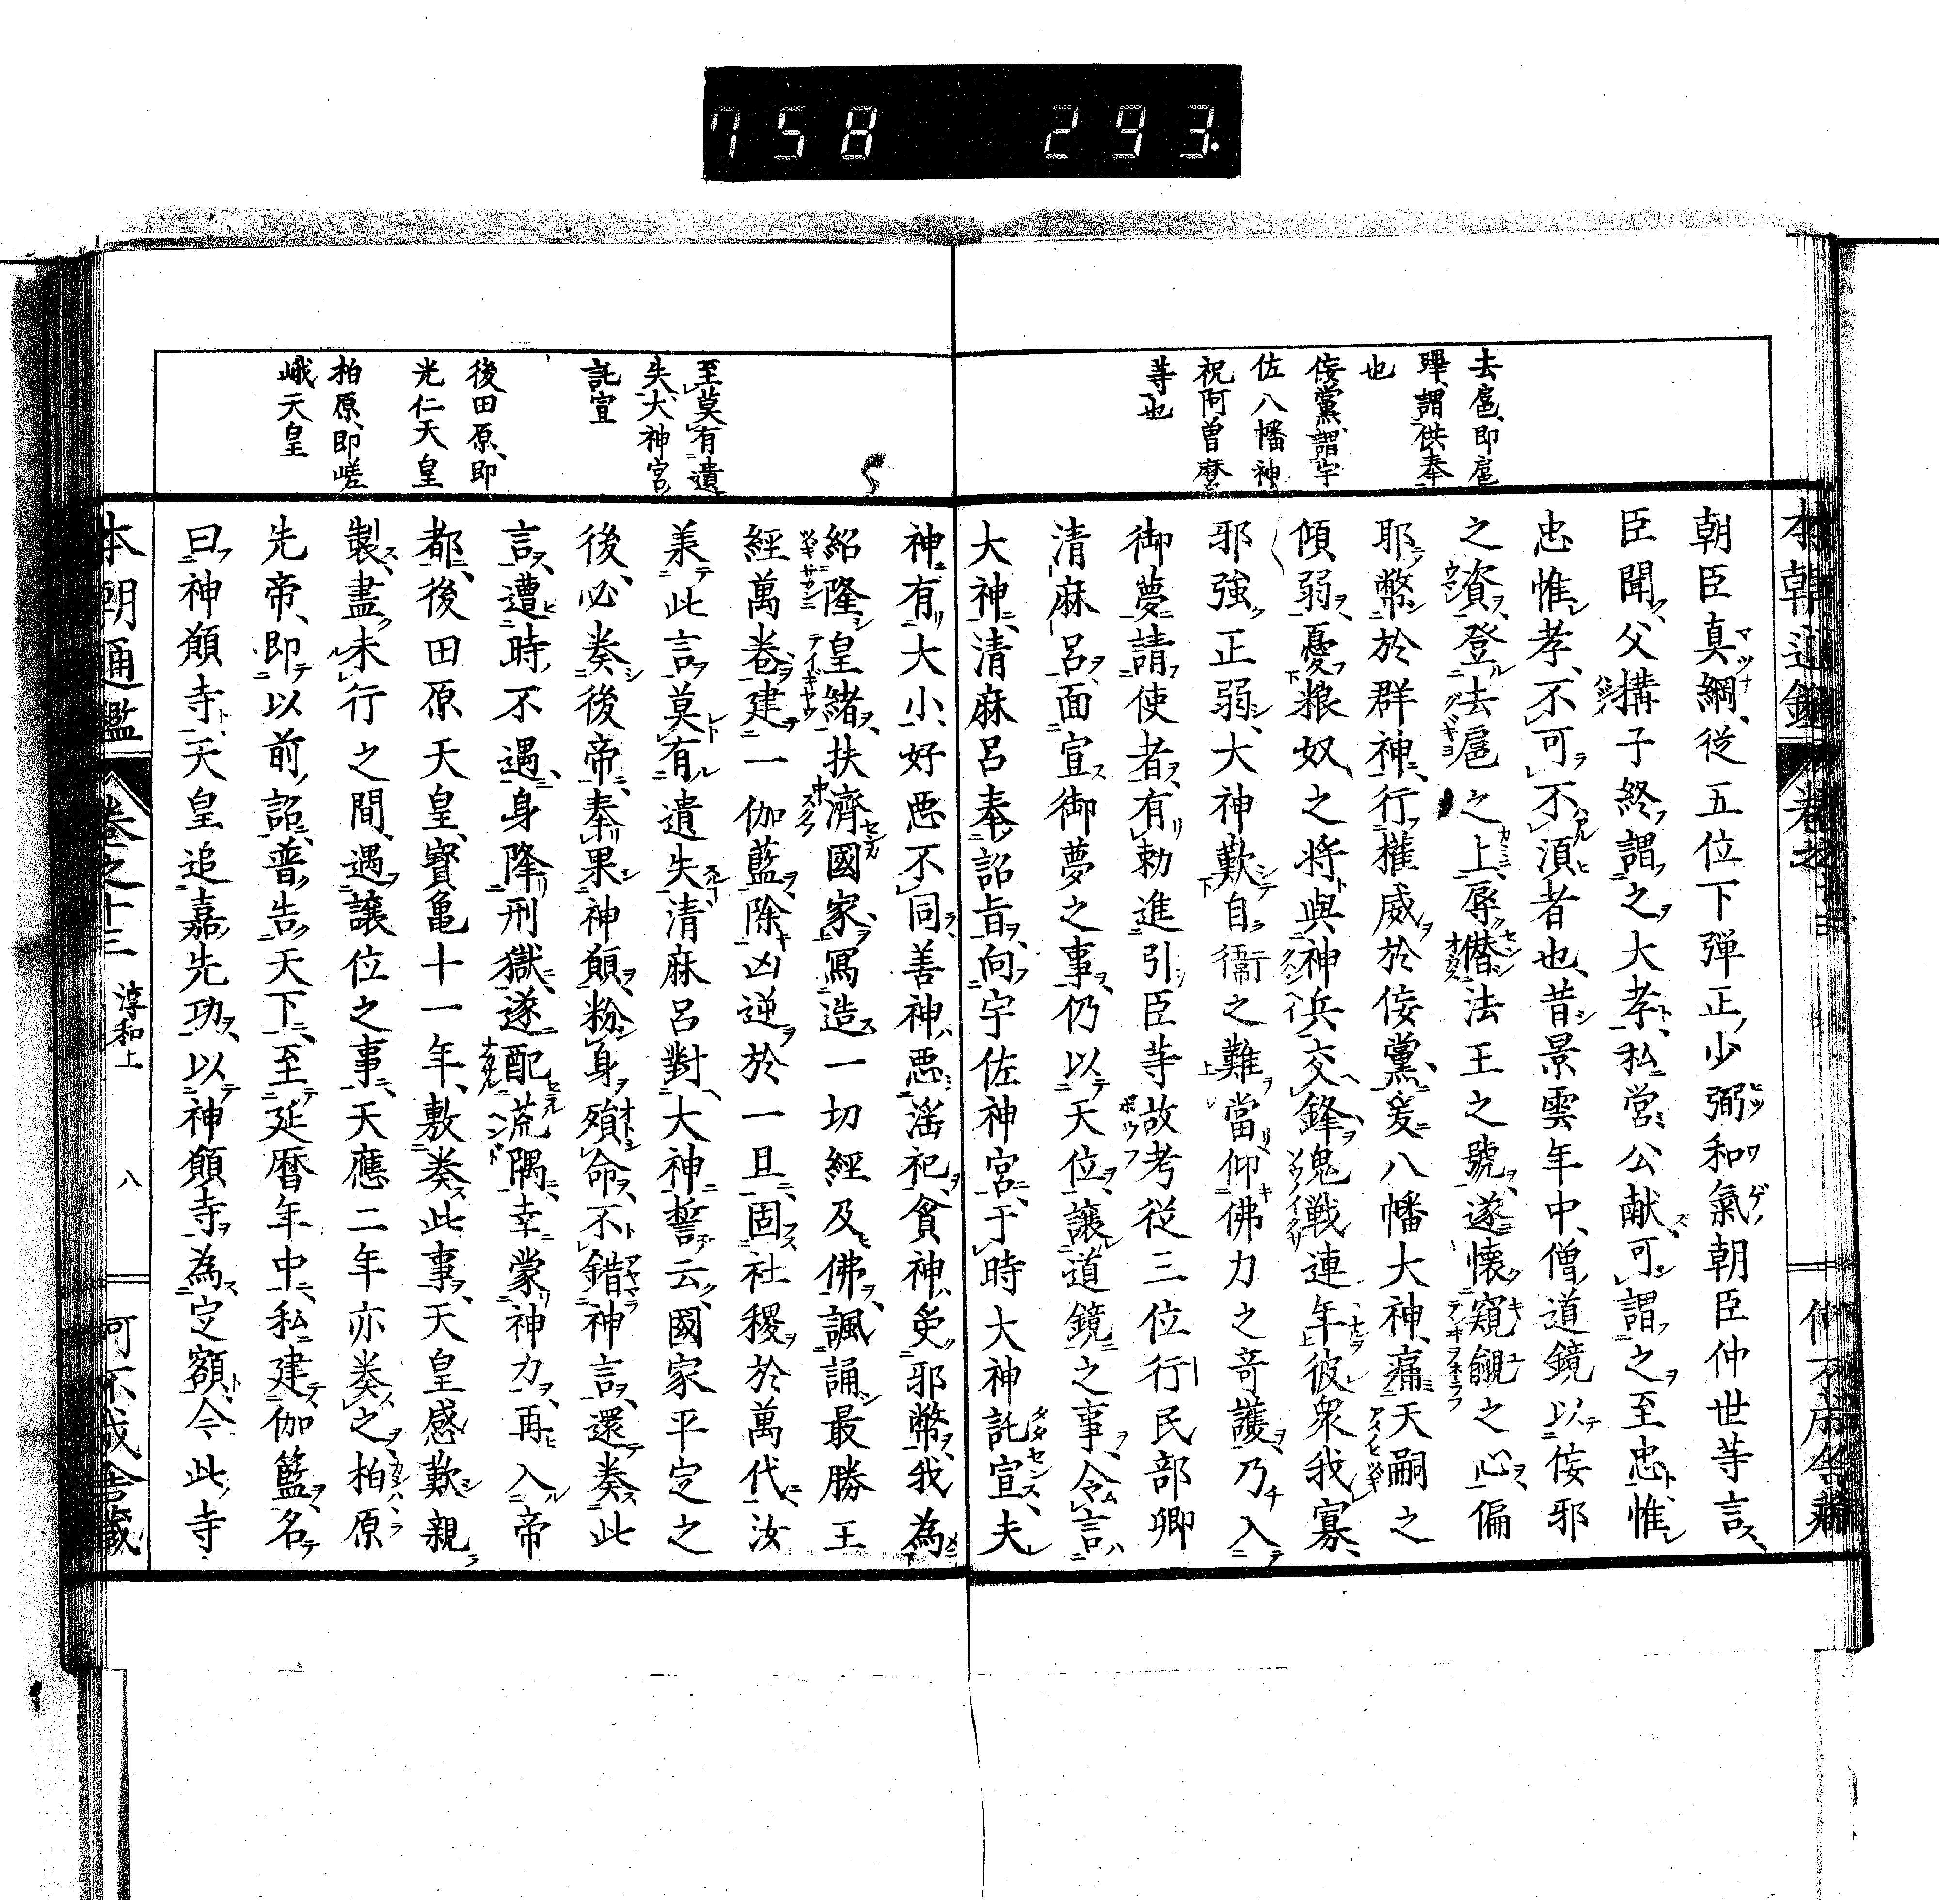 758 293.
去扈、即扈
蹕、謂供奉
也
侫黨、謂宇
佐八幡神
祝阿曽麿
等也
朝臣真綱、従五位下弾正少弼和氣朝臣仲世等言、
臣聞、父構子終、謂之大孝、私営公献、可謂之至忠、惟
忠惟孝、不可不湏者也、昔景雲年中、僧道鏡以侫邪
之資、登去扈之上、辱僭法王之號、遂懐窺覦之心、偏
耶幣於群神、行權威於侫黨、爰八幡大神、痛天嗣之
傾弱、憂粮奴之将與、神兵交鋒、鬼戦連年、彼衆我寡、
邪強正弱、大神歎自衛之難、當仰佛力之竒護、乃入
御夢、請使者、有勅進引臣等故考従三位行民部卿
清麻呂、面宣御夢之事、仍以天位、譲道鏡之事、令言
大神、清麻呂奉詔旨、向宇佐神宮、于時大神託宣、夫
至莫有遺
失、大神宮
託宣
後田原、即
光仁天皇
柏原、即嵯
峨天皇
神有大小、好悪不同、善神悪滛祀、貪神受邪幣、我為
紹隆皇緒、扶濟國家、冩造一切經及佛、諷誦最勝王
經萬巻、建一伽藍、除凶逆於一旦、固社稷於萬代、汝
兼此言、莫有遺失、清麻呂對大神誓云、國家平定之
後、必奏後帝、奉果神願、粉身殞命、不錯神言、還奏此
言、遭時不遇、身降刑獄、遂配荒隅、幸蒙神力、再入帝
都、後田原天皇、寳亀十一年、敷奏此事、天皇感歎、親
製、盡未行之間、遇譲位之事、天應二年亦奏之、柏原
先帝、即以前詔、普告天下、至延暦年中、私建伽籃、名
曰神願寺、天皇追嘉先功、以神願寺為定額、今此寺
本朝通鑑 巻之十三 淳和上 八